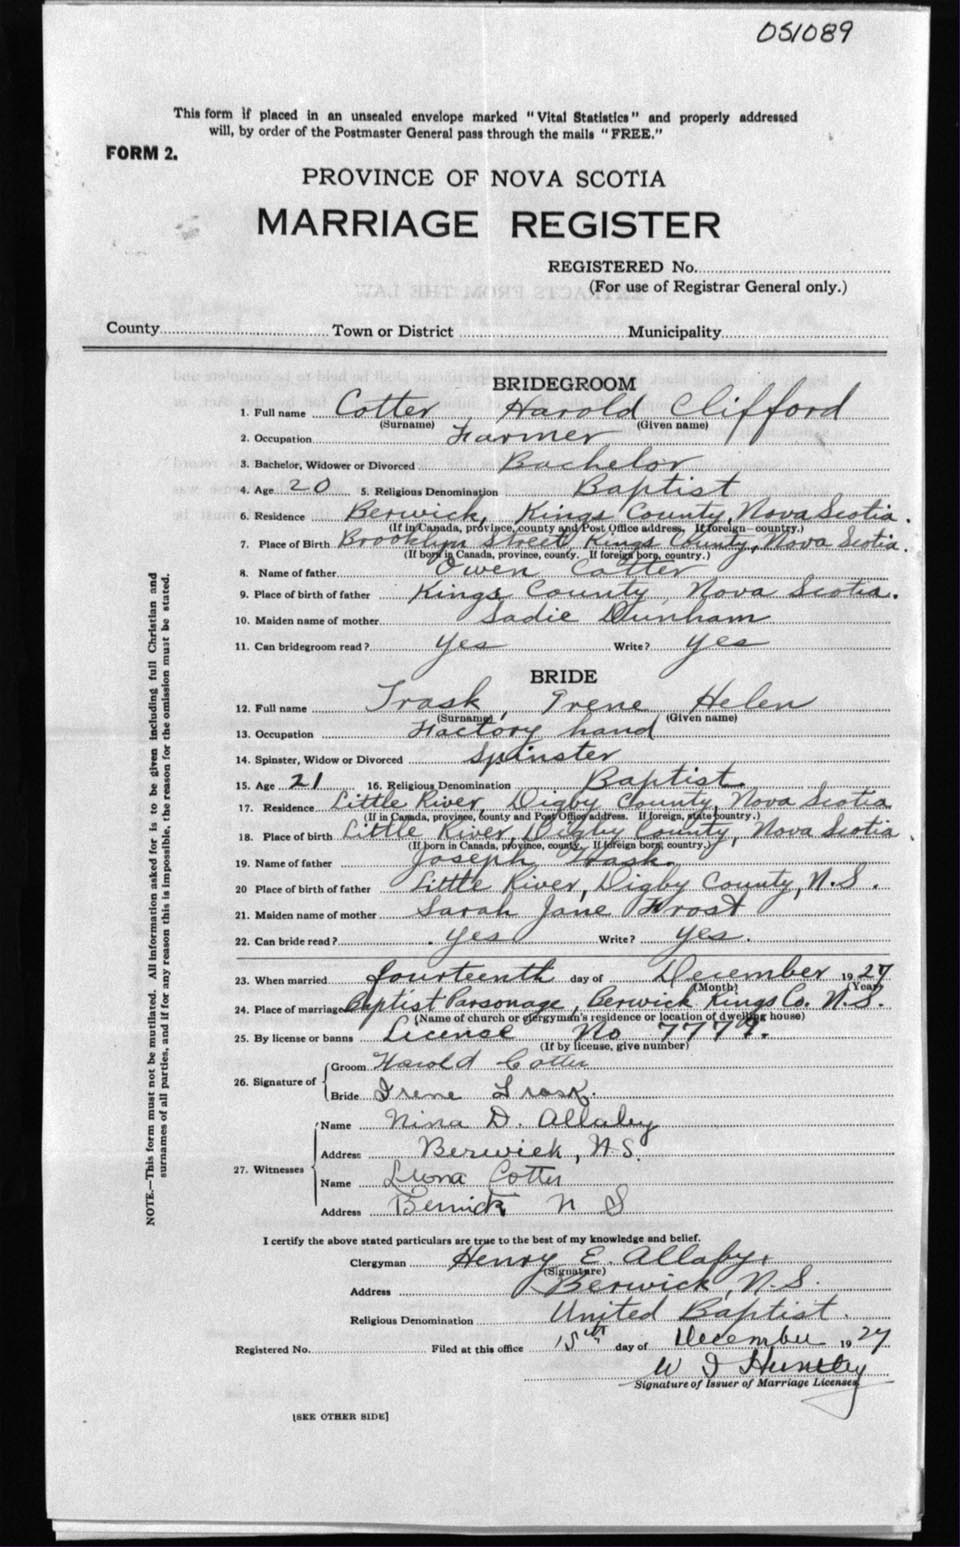 051089
This form if placed in an unsealed envelope marked "Vital Statistics" and properly addressed
will, by order of the Postmaster General pass through the mails "FREE."
FORM 2.
PROVINCE OF NOVA SCOTIA
MARRIAGE REGISTER
REGISTERED No.
(For use of Registrar General only.)
County Town or District Municipality
BRIDEGROOM
1. Full name Cotter Harold Clifford
(Surname) (Given name)
2. Occupation Farmer
3. Bachelor, Widower or Divorced Bachelor
4. Age 20 5. Religious Denomination Baptist
6. Residence Berwick, Kings County, Nova Scotia.
(If in Canada, province, county and Post Office address. If foreign—country.)
7. Place of Birth Brooklyn Street, Kings County, Nova Scotia.
(If born in Canada, province, county. If foreign born, country.)
8. Name of father Owen Cotter
9. Place of birth of father Kings County, Nova Scotia.
10. Maiden name of mother Sadie Dunham
11. Can bridegroom read? Yes Write? Yes
BRIDE
12. Full name Trask, Irene Helen
(Surname) (Given name)
13. Occupation Factory hand
14. Spinster, Widow or Divorced Spinster
15. Age 21 16. Religious Denomination Baptist.
17. Residence Little River, Digby County, Nova Scotia
(If in Canada, province, county and Post Office address. If foreign, state country.)
18. Place of birth Little River, Digby County, Nova Scotia.
(If born in Canada, province, county. If foreign born, country.)
19. Name of father Joseph Trask.
20 Place of birth of father Little River, Digby County, N.S.
21. Maiden name of mother Sarah Jane Frost
22. Can bride read? Yes Write? Yes.
23. When married fourteenth day of December 1927
(Month) (Year)
24. Place of marriage Baptist Parsonage, Berwick Kings Co. N.S.
(Name of church or clergyman's residence or location of dwelling house)
25. By license or banns License No 7779.
(If by license, give number)
26. Signature of Groom Harold Cotter
Bride Irene Trask.
27. Witnesses Name Nina D. Allaby
Address Berwick, N.S.
Name Cotter
Address Berwick N S
I certify the above stated particulars are true to the best of my knowledge and belief.
Clergyman Henry E. Allaby.
(Signature)
Address Berwick, N.S.
Religious Denomination United Baptist.
Registered No. Filed at this office 15th day of December 1927
W I Huntley
Signature of Issuer of Marriage Licenses
[SEE OTHER SIDE]
NOTE.—This form must not be mutilated. All information asked for is to be given including full Christian and
surnames of all parties, and if for any reason this is impossible, the reason for the omission must be stated.